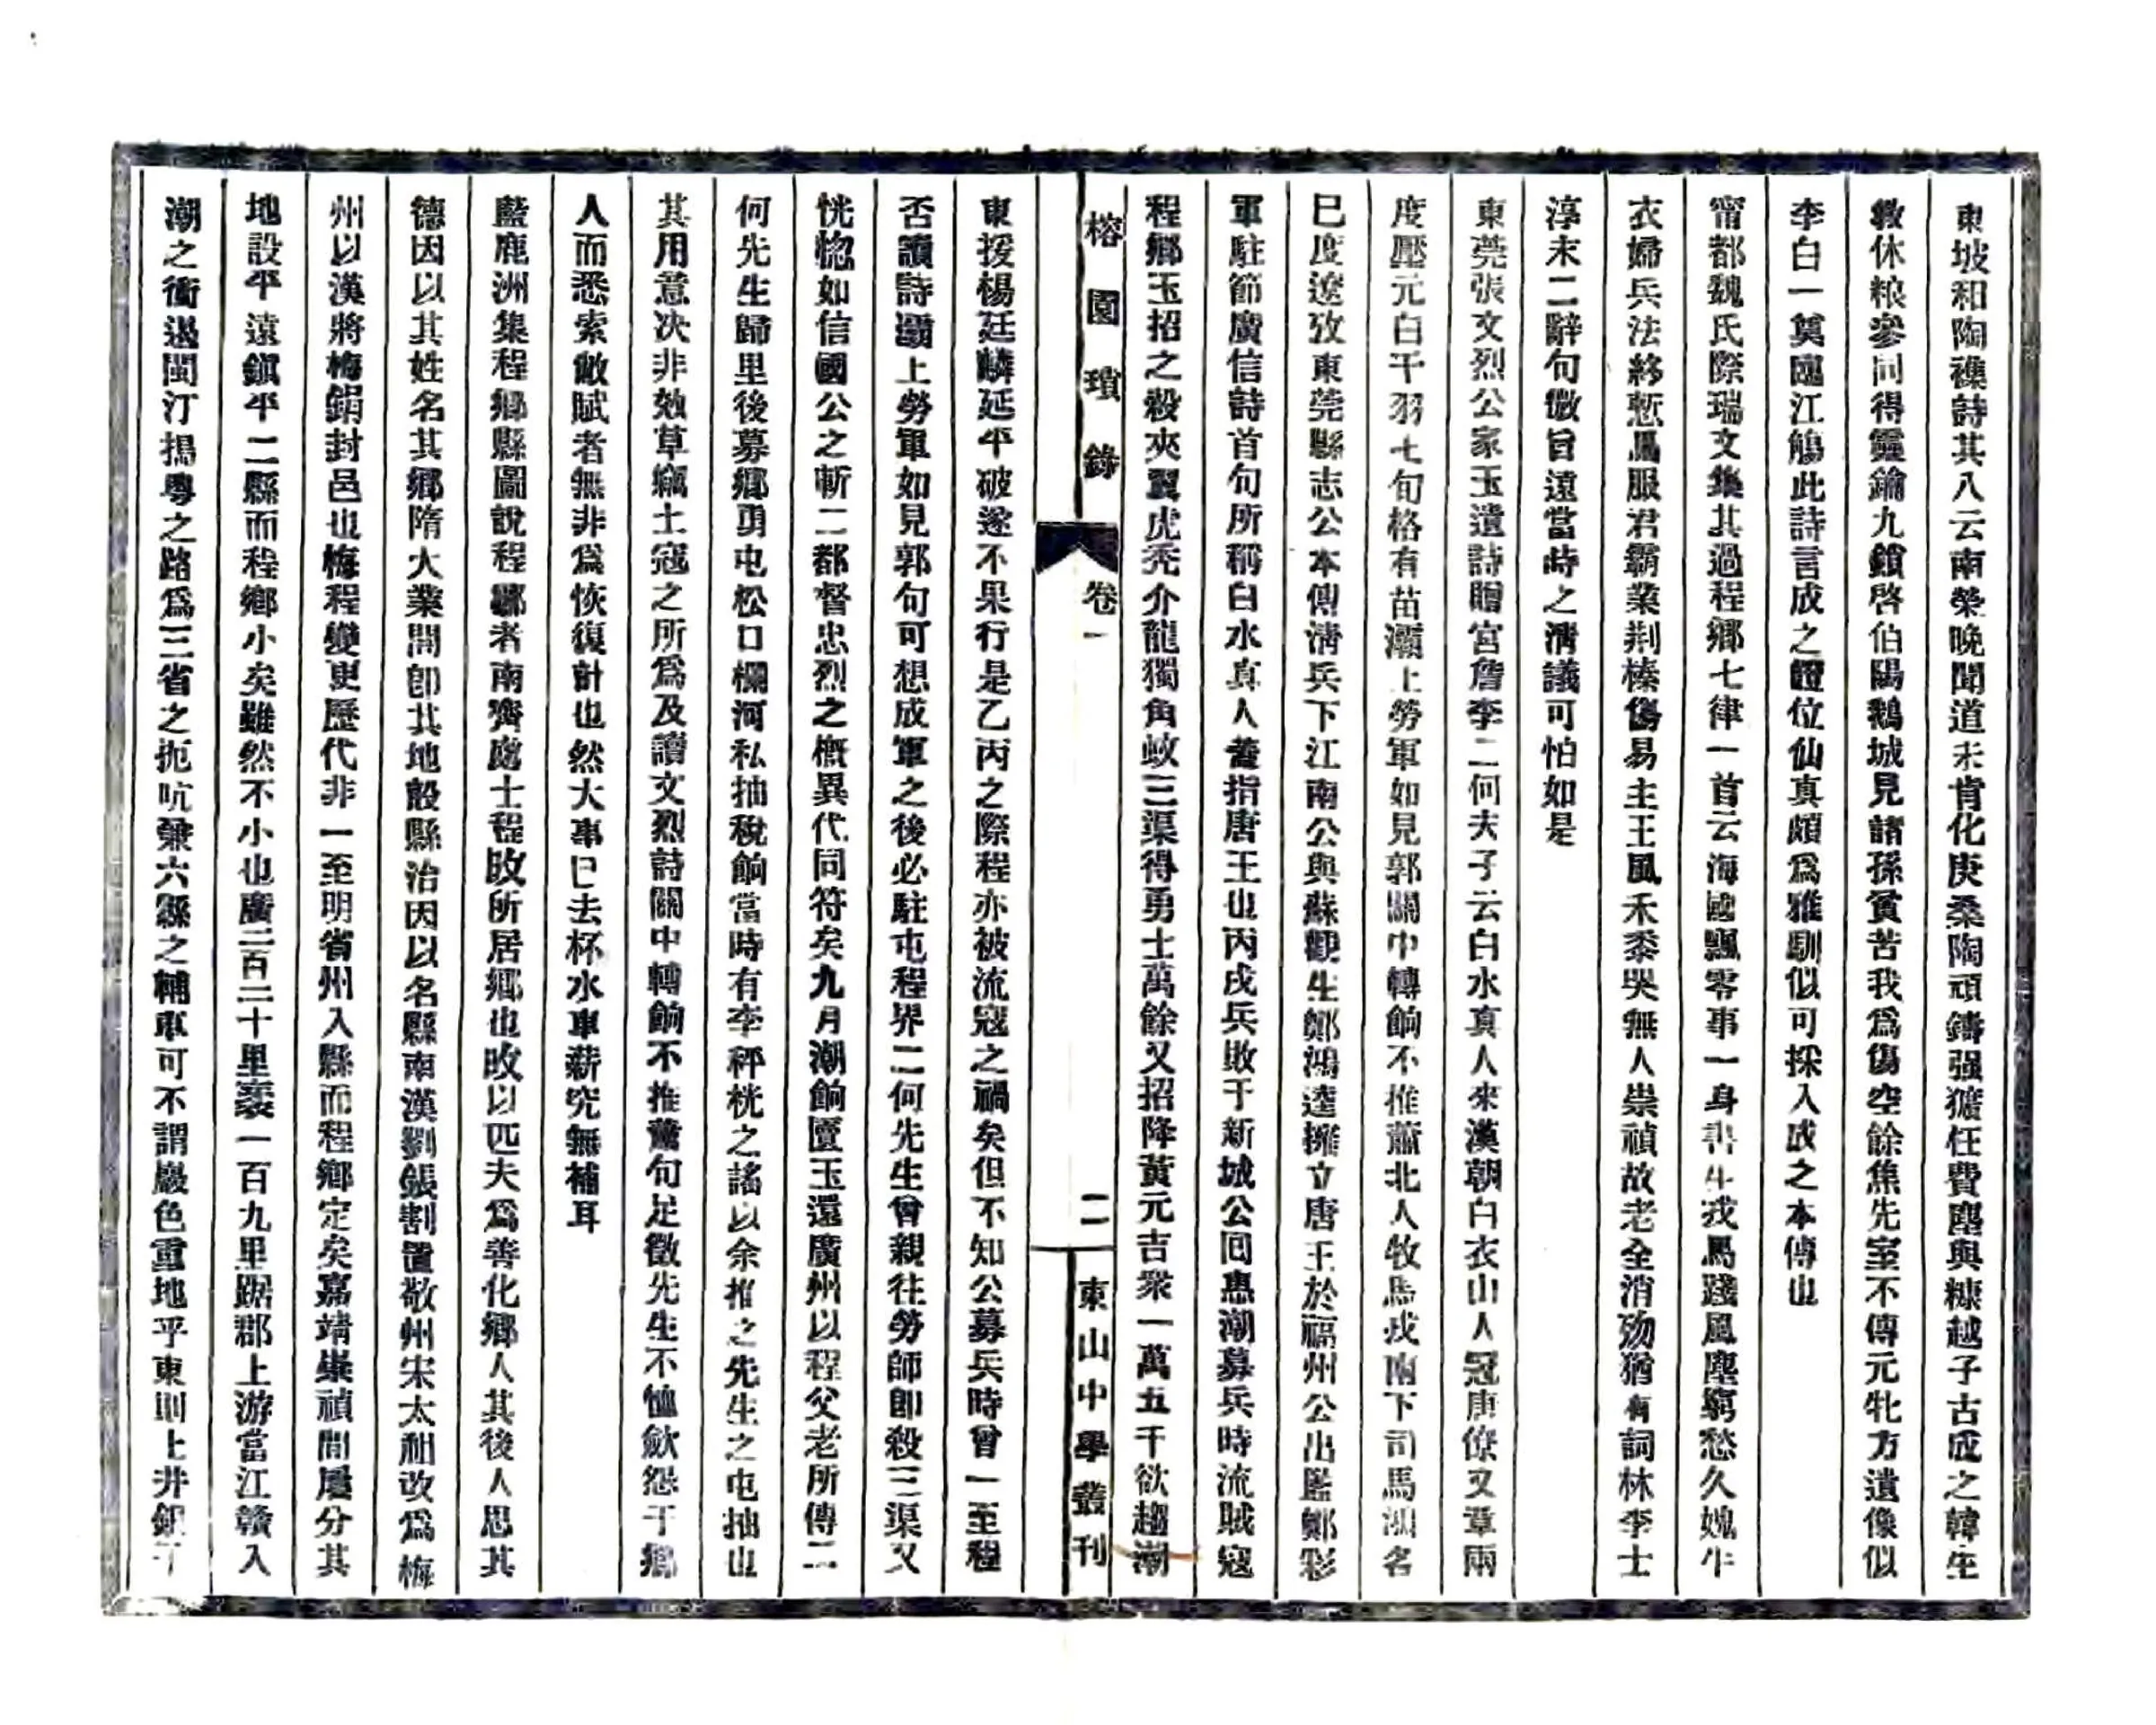 東坡和陶襍詩其八云南榮晚聞道未肯化庚桑陶頑鑄强獷任費塵與糠越子古成之韓生
敎休粮參同得靈鑰九鎖啓伯陽鵝城見諸孫貧苦我爲傷空餘焦先室不傳元牝方遺像似
李白一奠臨江觴此詩言成之體位仙真頗爲雅馴似可採入成之本傳也
甯都魏氏際瑞文集其過程鄉七律一首云海國飄零事一身書生戎馬踐風塵窮愁久媿牛
衣婦兵法終慙馬服君霸業荆榛傷易主王風禾黍哭無人崇禎故老全消歿猶有詞林李士
淳末二辭句微旨遠當時之淸議可怕如是
東莞張文烈公家玉遺詩贈宮詹李二何夫子云白水真人來漢朝白衣山人冠唐僚文章兩
度壓元白干羽七旬格有苗灞上勞軍如見郭關中轉餉不推蕭北人牧馬戎南下司馬湖名
巳度遼攷東莞縣志公本傳淸兵下江南公與蘇觀生鄭鴻逵擁立唐王於福州公出監鄭彩
軍駐節廣信詩首句所稱白水真人蓋指唐王也丙戌兵敗于新城公回惠潮募兵時流賊寇
程鄉玉招之殺夾翼虎禿介龍獨角蛟三渠得勇士萬餘又招降黃元吉衆一萬五千欲趨潮
榕園瑣錄
卷一
二
東山中學叢刊
東援楊廷麟延平破遂不果行是乙丙之際程亦被流寇之禍矣但不知公募兵時曾一至程
否讀詩灞上勞軍如見郭句可想成軍之後必駐屯程界二何先生曾親往勞師卽殺三渠又
恍惚如信國公之斬二都督忠烈之槪異代同符矣九月潮餉匱玉還廣州以程父老所傳二
何先生歸里後募鄉勇屯松口欄河私抽稅餉當時有李秤桄之謠以余推之先生之屯抽也
其用意决非效草竊土寇之所爲及讀文烈詩關中轉餉不推蕭句足徵先生不恤歛怨于鄉
人而悉索敝賦者無非爲恢復計也然大事巳去杯水車薪究無補耳
藍鹿洲集程鄉縣圖說程鄉者南齊處士程旼所居鄉也旼以匹夫爲善化鄉人其後人思其
德因以其姓名其鄉隋大業間卽其地設縣治因以名縣南漢劉鋹割置敬州宋太祖改爲梅
州以漢將梅鋗封邑也梅程變更歷代非一至明省州入縣而程鄉定矣嘉靖崇禎間屢分其
地設平遠鎭平二縣而程鄉小矣雖然不小也廣二百二十里袤一百九里踞郡上游當江贛入
潮之衝邊閩汀搗粤之路爲三省之扼吭兼六縣之輔車可不謂巖色重地乎東則上井